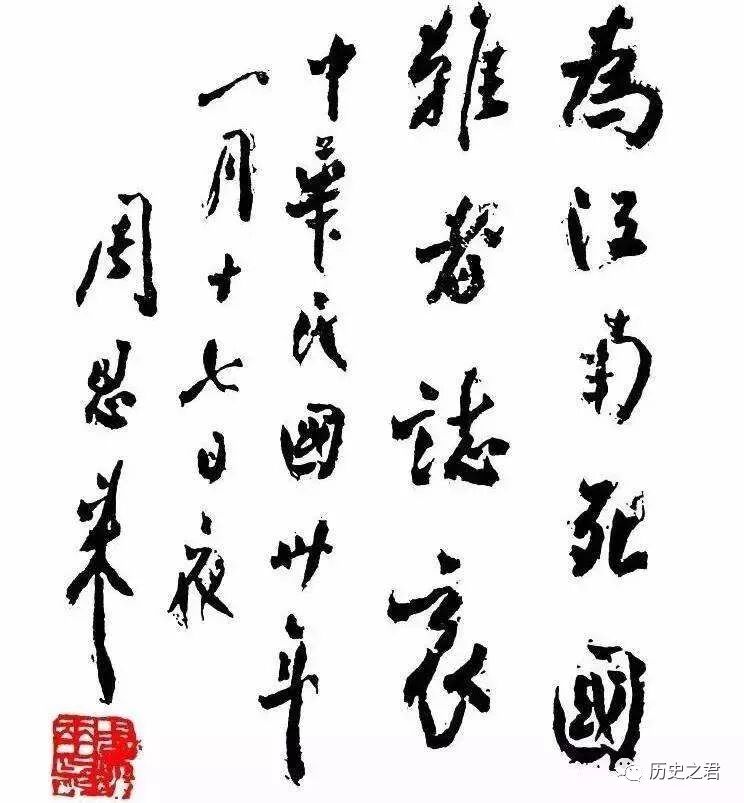 為江南死國
難者誌哀
中華民國卅年
一月十七日夜
周恩來
历史之君